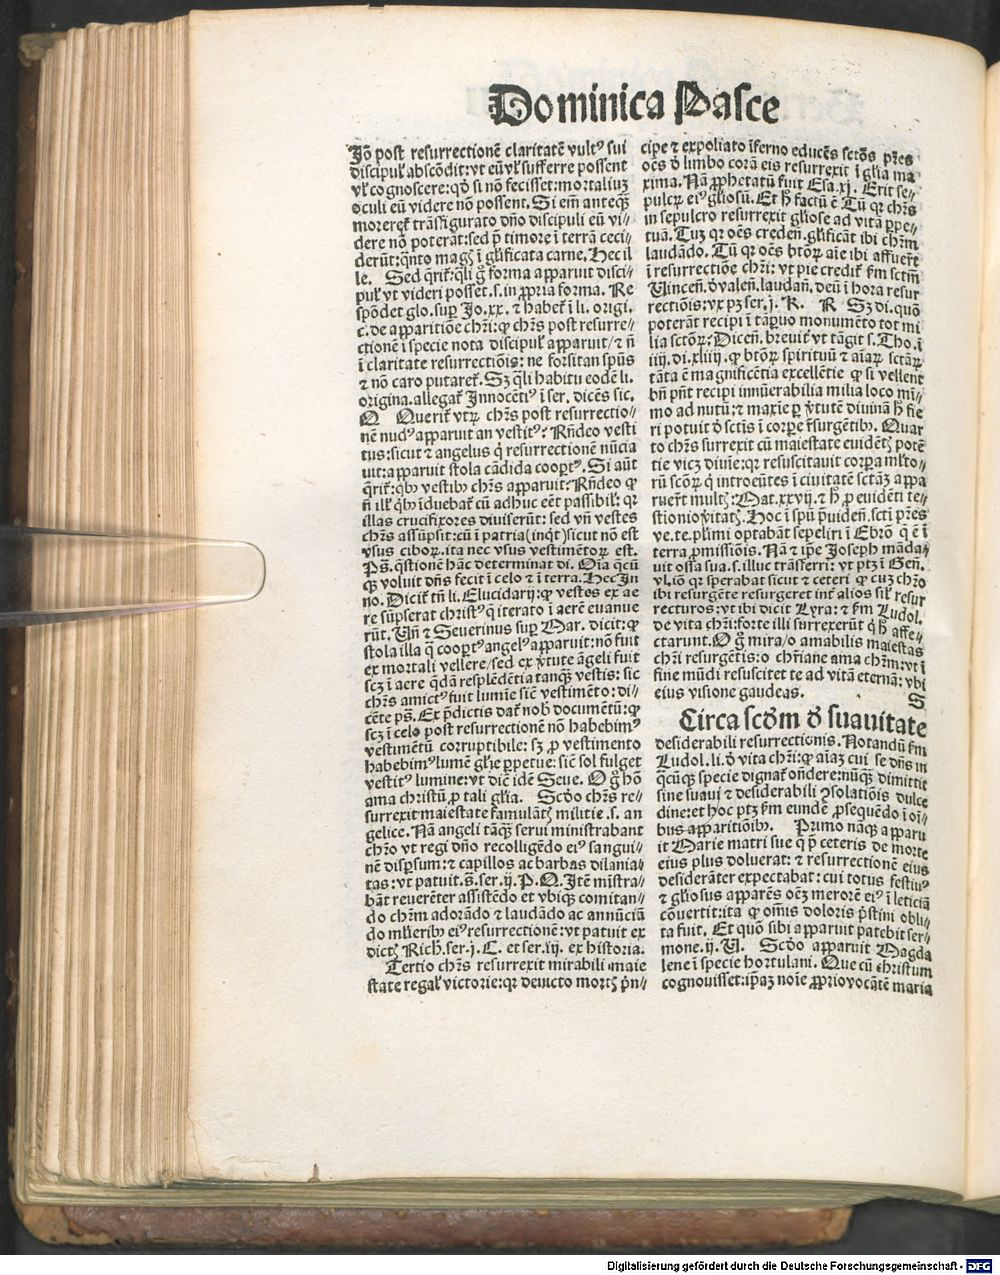 Dominica Pasce
Jo post resurrectionē claritatē vultꝰ sui
discipul' abscōdit: vt eū vl' sufferre possent
vl' cognoscere: qď si nō fecisset: mortaliuꝫ
oculi eū videre nō possent. Si em̄ anteqꝫ
moreret̃ trāsfigurato dn̄o discipuli eū vi⸗
dere nō poterāt: sed p̱ timore ī terrā ceci⸗
derūt: qn̄to magꝭ ī gl'ificata carne. Hec il
le. Sed q̄rit̃: qli gͦ forma apparuit disci⸗
pul' vt videri posset. s. in p̱pria forma. Re
spōdet glo. sup̱ Jo. xx. ⁊ habet̃ ī li. origi.
c. de apparitiōe chr̄i: ꝙ chr̄s post resurre⸗
ctionē ī specie nota discipul' apparuit/ ⁊ n̄
ī claritate resurrectiōis: ne forsitan spūs
⁊ nō caro putaret̃. Sꝫ q̄li habitu eodē li.
origina. allegat̃ Innocētiꝰ ī ser. dicēs sic.
Querit̃ vtꝝ chr̄s post resurrectio⸗
nē nudꝰ apparuit an vestitꝰ? Rn̄deo vesti
tus: sicut ⁊ angelus q̄ resurrectionē nūcia
uit: apparuit stola cādida coop̱tꝰ. Si aūt
q̄rit̃: qbꝰ vestibꝰ chr̄s apparuit: Rn̄deo ꝙ
n̄ ill' qbꝰ īduebat̃ cū adhuc eēt passibil': qr
illas crucifixores diuiserūt: sed vn̄ vestes
chr̄s assūpsit: cū ī patria (inqt) sicut nō est
vsus ciboꝝ. ita nec vsus vestimētoꝝ est.
Ps̄. qstionē hāc determinat di. Oīa qcū
qꝫ voluit dn̄s fecit ī celo ⁊ ī terra. Hec In
no. Dicit̃ tn̄ li. Elucidarij: ꝙ vestes ex ae
re sūpserat christꝰ q iterato ī aerē euanue
rūt. Vn̄ ⁊ Seuerinus sup̱ Mar. dicit: ꝙ
stola illa q̄ coop̱tꝰ angelꝰ apparuit: nō fuit
ex mortali vellere/ sed ex v̄tute āgeli fuit
scꝫ ī aere qdā resplēdētia tanqꝫ vestis: sic
chr̄s amictꝰ fuit lumīe sic̄ vestimēto: di⸗
cēte ps̄. Ex p̄dictis dat̃ nob̄ documētū: ꝙ
scꝫ ī celo post resurrectionē nō habebimꝰ
vestimētū corruptibile: sꝫ ꝓ vestimento
habebimꝰ lumē gl'ie p̱petue: sic̄ sol fulget
vestitꝰ lumine: vt dic̄ idē Seue. O gͦ hō
ama christū ꝓ tali gl'ia. Scďo chr̄s re⸗
surrexit maiestate famulātꝭ militie. s. an
gelice. Nā angeli tāqꝫ serui ministrabant
chr̄o vt regi dn̄o recolligēdo eiꝰ sangui⸗
nē disp̱sum: ⁊ capillos ac barbas dilania⸗
tas: vt patuit. s̄. ser. ij. P. Q. Itē mīstra⸗
bāt reuerēter assistēdo et vbiqꝫ comitan⸗
do chr̄m adorādo ⁊ laudādo ac annūciā
do ml'ieribꝰ eiꝰ resurrectionē: vt patuit ex
dictꝭ Rich. ser. j. C. et ser. iij. ex historia.
Tertio chr̄s resurrexit mirabili maie
state regal' victorie: qr deuicto mortꝭ p̄n⸗
cipe ⁊ expoliato īferno educēs sctōs pr̄es
oēs ď limbo corā eis resurrexit ī gl'ia ma
xima. Nā ꝓphetatū fuit Esa. xj. Erit se⸗
pulcꝝ eiꝰ gl'iosū. Et h̄ factū ē Tū qr chr̄s
in sepulcro resurrexit gl'iose ad vitā p̱pe⸗
tuā. Tuꝫ qr oēs creden. gl'ificāt ibi chr̄m
laudādo. Tū qr oēs btōꝝ aīe ibi affuerūt
ī resurrectiōe chr̄i: vt pie credit̃ ẜm sctm̄
Vincen. ď valen. laudan. deū ī hora resur
rectiōis: vx pꝫ ser. j. R. R Sꝫ di. quō
poterāt recipi ī tā p̱uo monumēto tot mi
lia sctōꝝ: Dicen. breuit̃ vt tāgit s. Tho. ī
iiij. di. xliiij. ꝙ btōꝝ spirituū ⁊ aīaꝝ sctāꝝ
tāta ē magnificētia excellētie ꝙ si vellent
bn̄ pn̄t recipi innūerabilia milia loco mī⸗
mo ad nutū: ⁊ maxīe p̱ v̄tutē diuinā h̄ fie
ri potuit ď sctīs ī corp̱e r̄surgētibꝰ. Quar
to chr̄s surrexit cū maiestate euidētꝭ potē
tie vicꝫ diuīe: qr resuscitauit corpa ml'to⸗
rū scōꝝ q introeūtes ī ciuitatē sctāꝫ appa
ruer̄t multꝭ: Mat. xxvij. ⁊ h̄ ꝓ euidēti te⸗
stionio v̄itatꝭ. Hoc ī spū p̄uiden. sctī pr̄es
ve. te. pl'imi optabāt sepeliri ī Ebrō q̄ ē ī
terra ꝓmissiōis. Nā ⁊ ip̄e Joseph māda⸗
uit ossa sua. s. illuc trāsferri: vt ptꝫ ī Gen̄.
vl. iō qr sperabat sicut ⁊ ceteri ꝙ cuꝫ chr̄o
ibi resurgēte resurgeret int̃ alios sil' resur
recturos: vt ibi dicit Lyra: ⁊ ẜm Ludol.
de vita chr̄i: forte illi surrexerūt q h̄ affe⸗
ctarunt. O gͦ mira/ o amabilis maiestas
chr̄i resurgētis: o chr̄iane ama chr̄m: vt ī
fine mūdi resuscitet te ad vitā eternā: vbi
eius visione gaudeas. S
Circa scďm ď suauitate
desiderabili resurrectionis. Notandū ẜm
Ludol. li. ď vita chr̄i: ꝙ aīaꝫ cui se dn̄s in
qcūqꝫ specie dignat̃ on̄dere: nūqꝫ dimittit
sine suaui ⁊ desiderabili ꝯsolatiōis dulce
dine: et hoc ptꝫ ẜm eundē ꝓsequēdo ī oī⸗
bus apparitiōibꝰ. Primo nāqꝫ apparu
it Marie matri sue q p̄ ceteris de morte
eius plus doluerat: ⁊ resurrectionē eius
desiderāter expectabat: cui totus festiuꝰ
⁊ gl'iosus apparēs oēꝫ merorē eiꝰ ī leticiā
cōuertit: ita ꝙ om̄is doloris p̄stini obli⸗
ta fuit. Et quō sibi apparuit patebit ser⸗
mone. ij. V. Scďo apparuit Magda
lene ī specie hortulani. Que cū christum
cognouisset: ip̄aꝫ noīe ꝓprio vocātē maria
Digitalisierung gefördert durch die Deutsche Forschungsgemeinschaft - DFG